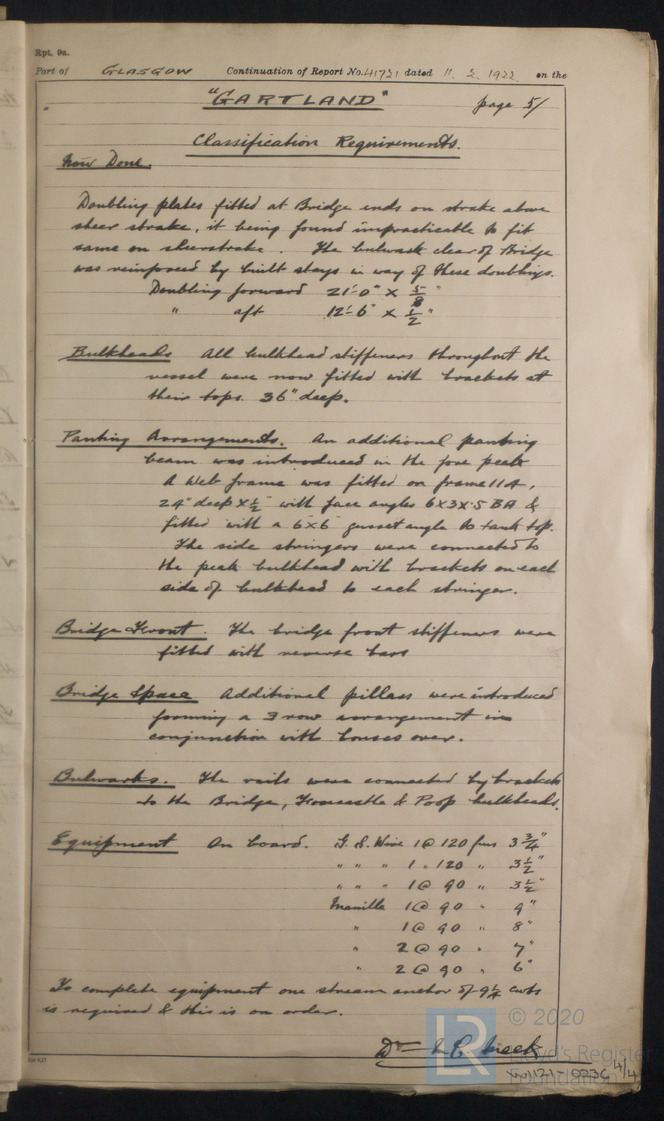 Rpt. 9a.
Port of GLASGOW Continuation of Report No. 41721 dated 11. 2. 1922 on the
"GARTLAND" page 5/
Classification Requirements.
Now Done.
Doubling plates fitted at Bridge ends on strake above
sheer strake, it being found impracticable to fit
same on sheerstrake. The bulwark clear of Bridge
was reinforced by built stays in way of these doublings.
Doubling forward 21'-0" x 5/8"
" aft 12'-6" x 1/2"
Bulkheads All bulkhead stiffeners throughout the
vessel were now fitted with brackets at
their tops 36" deep.
Panting Arrangements. An additional panting
beam was introduced in the fore peak
A Web frame was fitted on frame 114,
24" deep x 1/2" with face angles 6x3x.5 BA &
fitted with a 6x6 gusset angle to tank top.
The side stringers were connected to
the peak bulkhead with brackets on each
side of bulkhead to each stringer.
Bridge Front. The bridge front stiffeners were
fitted with reverse bars
Bridge Space Additional pillars were introduced
forming a 3 row arrangement in
conjunction with houses over.
Bulwarks. The rails were connected by brackets
to the Bridge, Forecastle & Poop bulkheads.
Equipment On board. G.S. Wire 1 @ 120 fms 3 3/4"
" " " 1 " 120 " 3 1/2"
" " " 1 @ 90 " 3 1/2"
Manilla 1 @ 90 " 9"
" 1 @ 90 " 8"
" 2 @ 90 " 7"
" 2 @ 90 " 6"
To complete equipment one stream anchor of 9 1/4 cwts
is required & this is on order.
LR © 2020
Lloyd's Register
Foundation
4/4